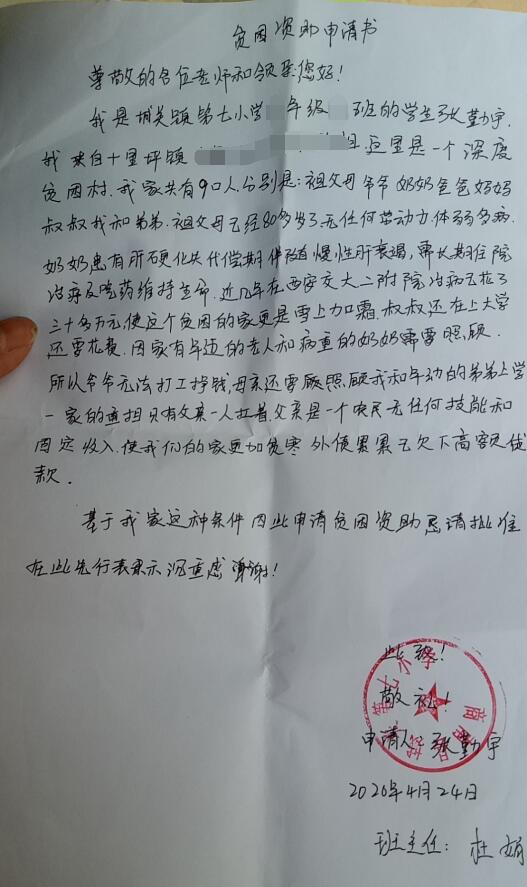 贫困资助申请书
尊敬的各位老师和领导您好!
我是城关镇第七小学 年级 班的学生张勤宇.
我来自十里坪镇 组这里是一个深度
贫困村.我家共有9口人分别是:祖父母爷爷奶奶爸爸妈妈
叔叔我和弟弟.祖父母已经80多岁了无任何劳动力体弱多病.
奶奶患有肝硬化失代偿期伴随慢性肝衰竭,需长期住院
治病及吃药维持生命.近几年在西安交大二附院治病已花了
三十多万元使这个贫困的家更是雪上加霜.叔叔还在上大学
还要花费.因家有年迈的老人和病重的奶奶需要照顾.
所以爷爷无法打工挣钱,母亲还要照顾我和年幼的弟弟上学
一家的重担只有父亲一人扛着父亲是一个农民无任何技能和
固定收入.使我们的家更加贫寒外债累累已欠下高额贷
款.
基于我家这种条件因此申请贫困资助恳请批准
在此先行表示沉重感谢!
此致!
敬礼!
申请人:张勤宇
2020年4月24日
班主任:杜娟